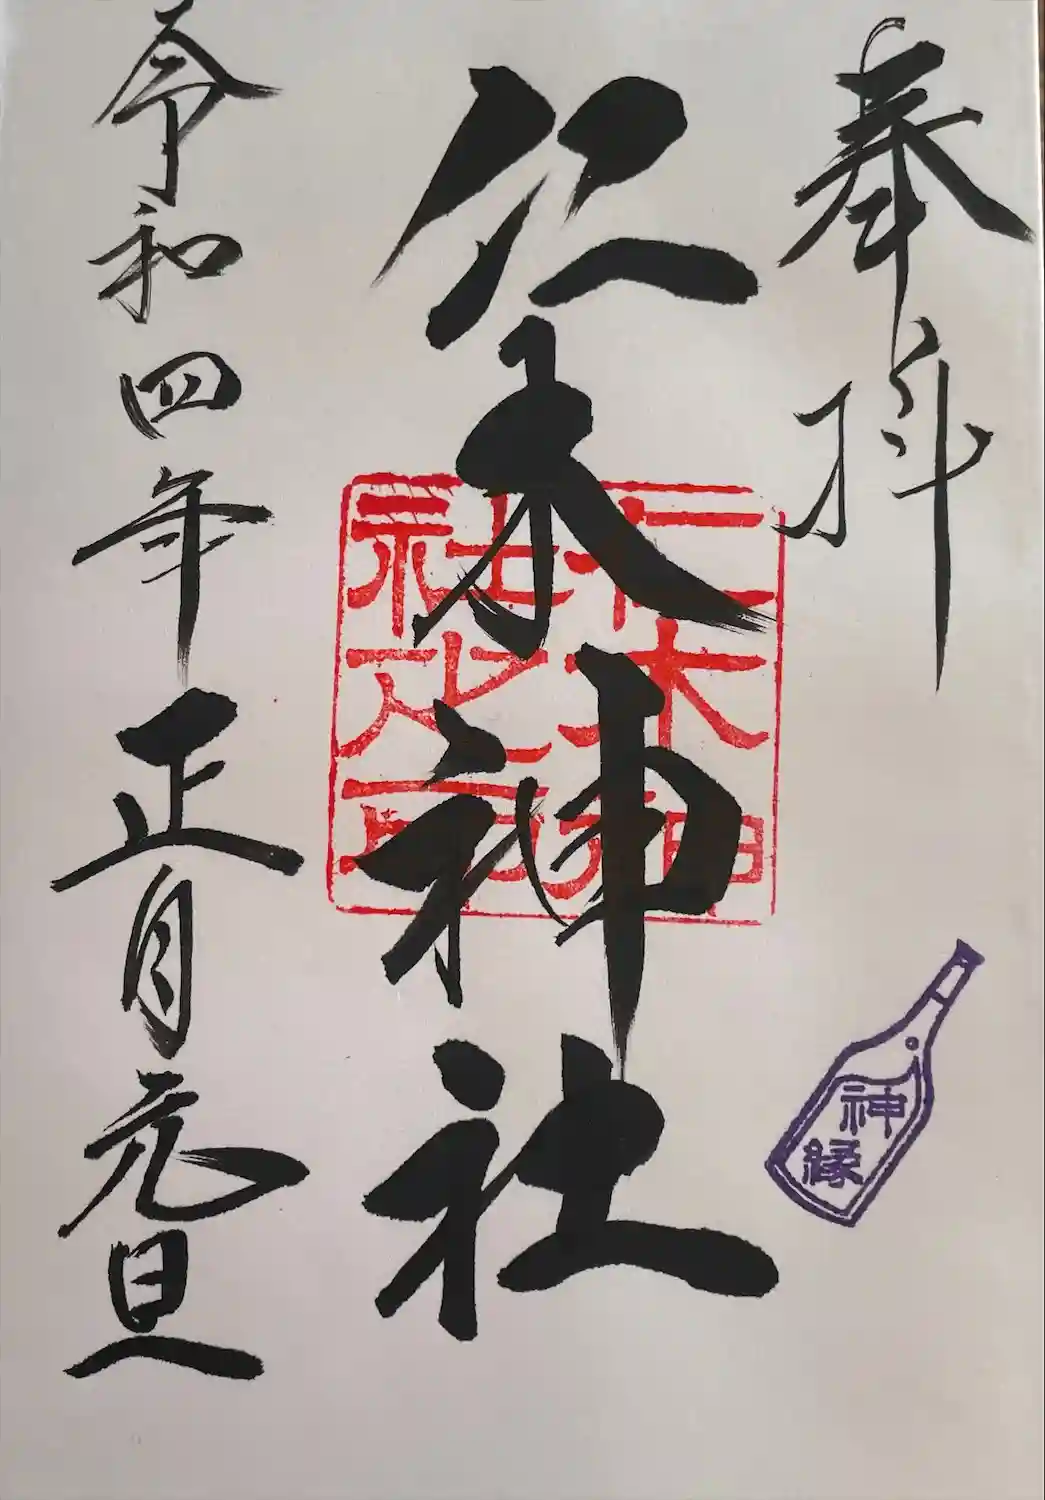 奉拝
仁木神社
仁木神
社之印
令和四年正月元旦
神
縁